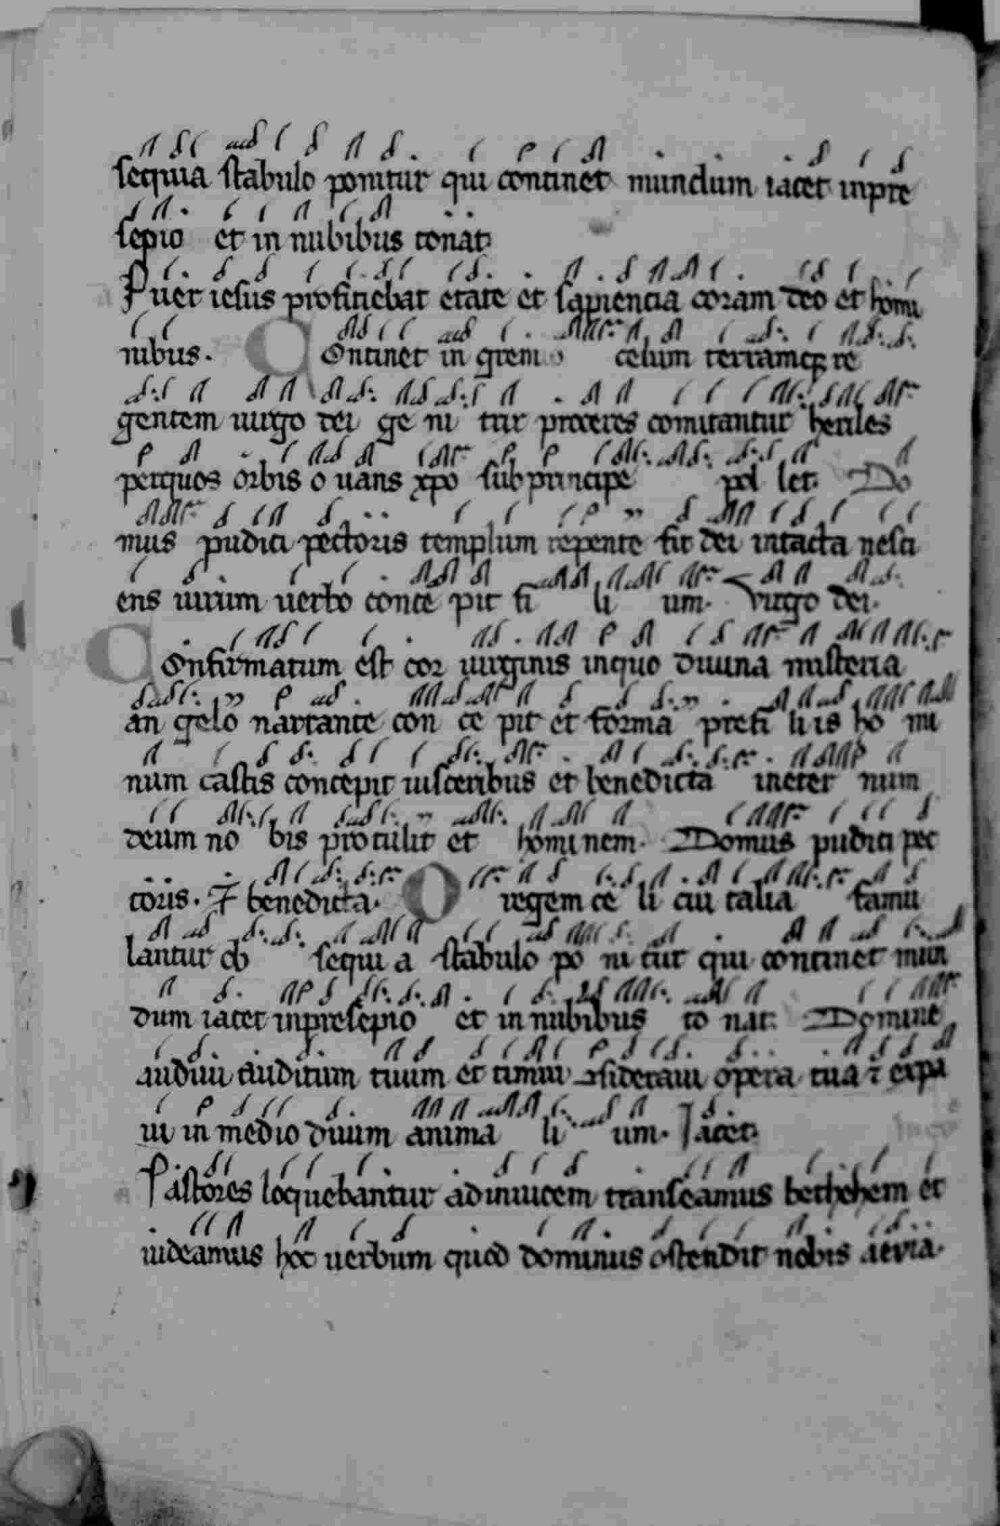 sequia stabulo ponitur qui continet mundum iacet inpre
sepio et in nubibus tonat.
Puer iesus proficiebat etate et sapiencia coram deo et homi
nibus. Continet in gremio celum terramq; re
gentem uirgo dei ge ni trix proceres comitantur heriles
perquos orbis o uans xpo sub principe pol let. Do
mus pudici pectoris templum repente fit dei intacta nesci
ens uirum uerbo conce pit fi li um. Virgo dei.
Confirmatum est cor uirginis inquo diuina misteria
an gelo narrante con ce pit et forma prefi liis ho mi
num castis concepit uisceribus et benedicta ineter num
deum no bis protulit et hominem. Domus pudici pec
toris. Et benedicta. O regem ce li cui talia famu
lantur ob sequi a stabulo po ni tur qui continet mun
dum iacet inpresepio et in nubibus to nat. Domine
audiui auditum tuum et timui ɔsideraui opera tua ⁊ expa
ui in medio duum anima li um. Iacet.
Pastores loquebantur adinuicem transeamus bethehem et
uideamus hoc uerbum quod dominus ostendit nobis aevia.